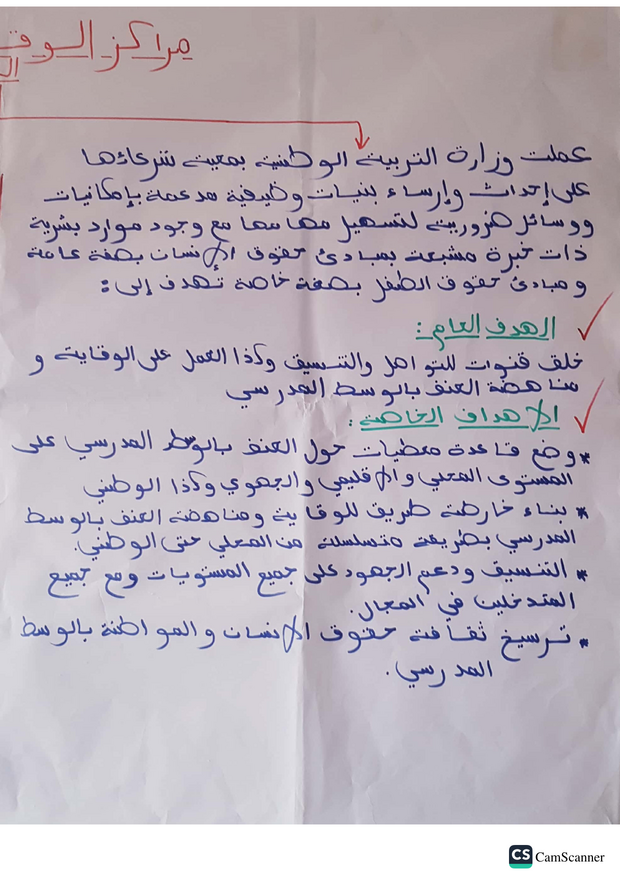 مراكز الوقـ
الـ
عملت وزارة التربية الوطنية بمعية شركاؤها
على إحداث وإرساء بنيات وظيفية مدعمة بإمكانيات
ووسائل ضرورية لتسهيل مهامها مع وجود موارد بشرية
ذات خبرة مشبعة بمبادئ حقوق الإنسان بصفة عامة
ومبادئ حقوق الطفل بصفة خاصة تهدف إلى:
الهدف العام:
خلق قنوات للتواصل والتنسيق وكذا العمل على الوقاية و
مناهضة العنف بالوسط المدرسي
الأهداف الخاصة:
* وضع قاعدة معطيات حول العنف بالوسط المدرسي على
المستوى المحلي والإقليمي والجهوي وكذا الوطني
* بناء خارطة طريق للوقاية ومناهضة العنف بالوسط
المدرسي بطريقة متسلسلة من المحلي حتى الوطني.
* التنسيق ودعم الجهود على جميع المستويات ومع جميع
المتدخلين في المجال.
* ترسيخ ثقافة حقوق الإنسان والمواطنة بالوسط
المدرسي.
CS CamScanner